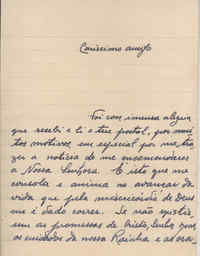 Caríssimo amigo
Foi com imensa alegria
que recebi e li o teu postal, por mui
tos motivos, em especial por me tra
zer a notícia de me encomendares
a Nossa Senhora. É isto que me
consola e anima no avançar da
vida que pela misericórdia de Deus
me é dado correr. Se não existis
sem as promessas de Cristo,
os cuidados da nossa Rainha e as ora